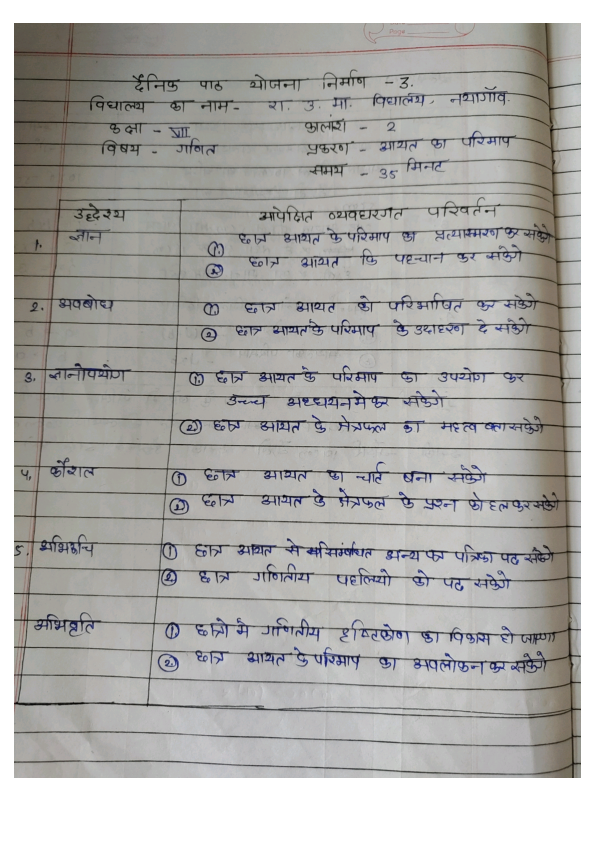 दैनिक पाठ योजना निर्माण - 3.
विद्यालय का नाम - रा. उ. मा. विद्यालय, नयागाँव.
कक्षा - VII कालांश - 2
विषय - गणित प्रकरण - आयत का परिमाप
समय - 35 मिनट
उद्देश्य आपेक्षित व्यवहारगत परिवर्तन
1. ज्ञान ① छात्र आयत के परिमाप का प्रत्यास्मरण कर सकेंगे
② छात्र आयत कि पहचान कर सकेंगे
2. अवबोध ① छात्र आयत को परिभाषित कर सकेंगे
② छात्र आयत के परिमाप के उदाहरण दे सकेंगे
3. ज्ञानोपयोग ① छात्र आयत के परिमाप का उपयोग कर
उच्च अध्ययन मे कर सकेंगे
② छात्र आयत के क्षेत्रफल का महत्व बता सकेंगे
4. कौशल ① छात्र आयत का चार्ट बना सकेंगे
② छात्र आयत के क्षेत्रफल के प्रश्न को हल कर सकेंगे
5. अभिरूचि ① छात्र आयत से संबंधित अन्य पत्र पत्रिका पढ सकेंगे
② छात्र गणितीय पहलियो को पढ सकेंगे
अभिवृति ① छात्रो मे गणितीय दृष्टिकोण का विकास हो जाएगा
② छात्र आयत के परिमाप का अवलोकन कर सकेंगे